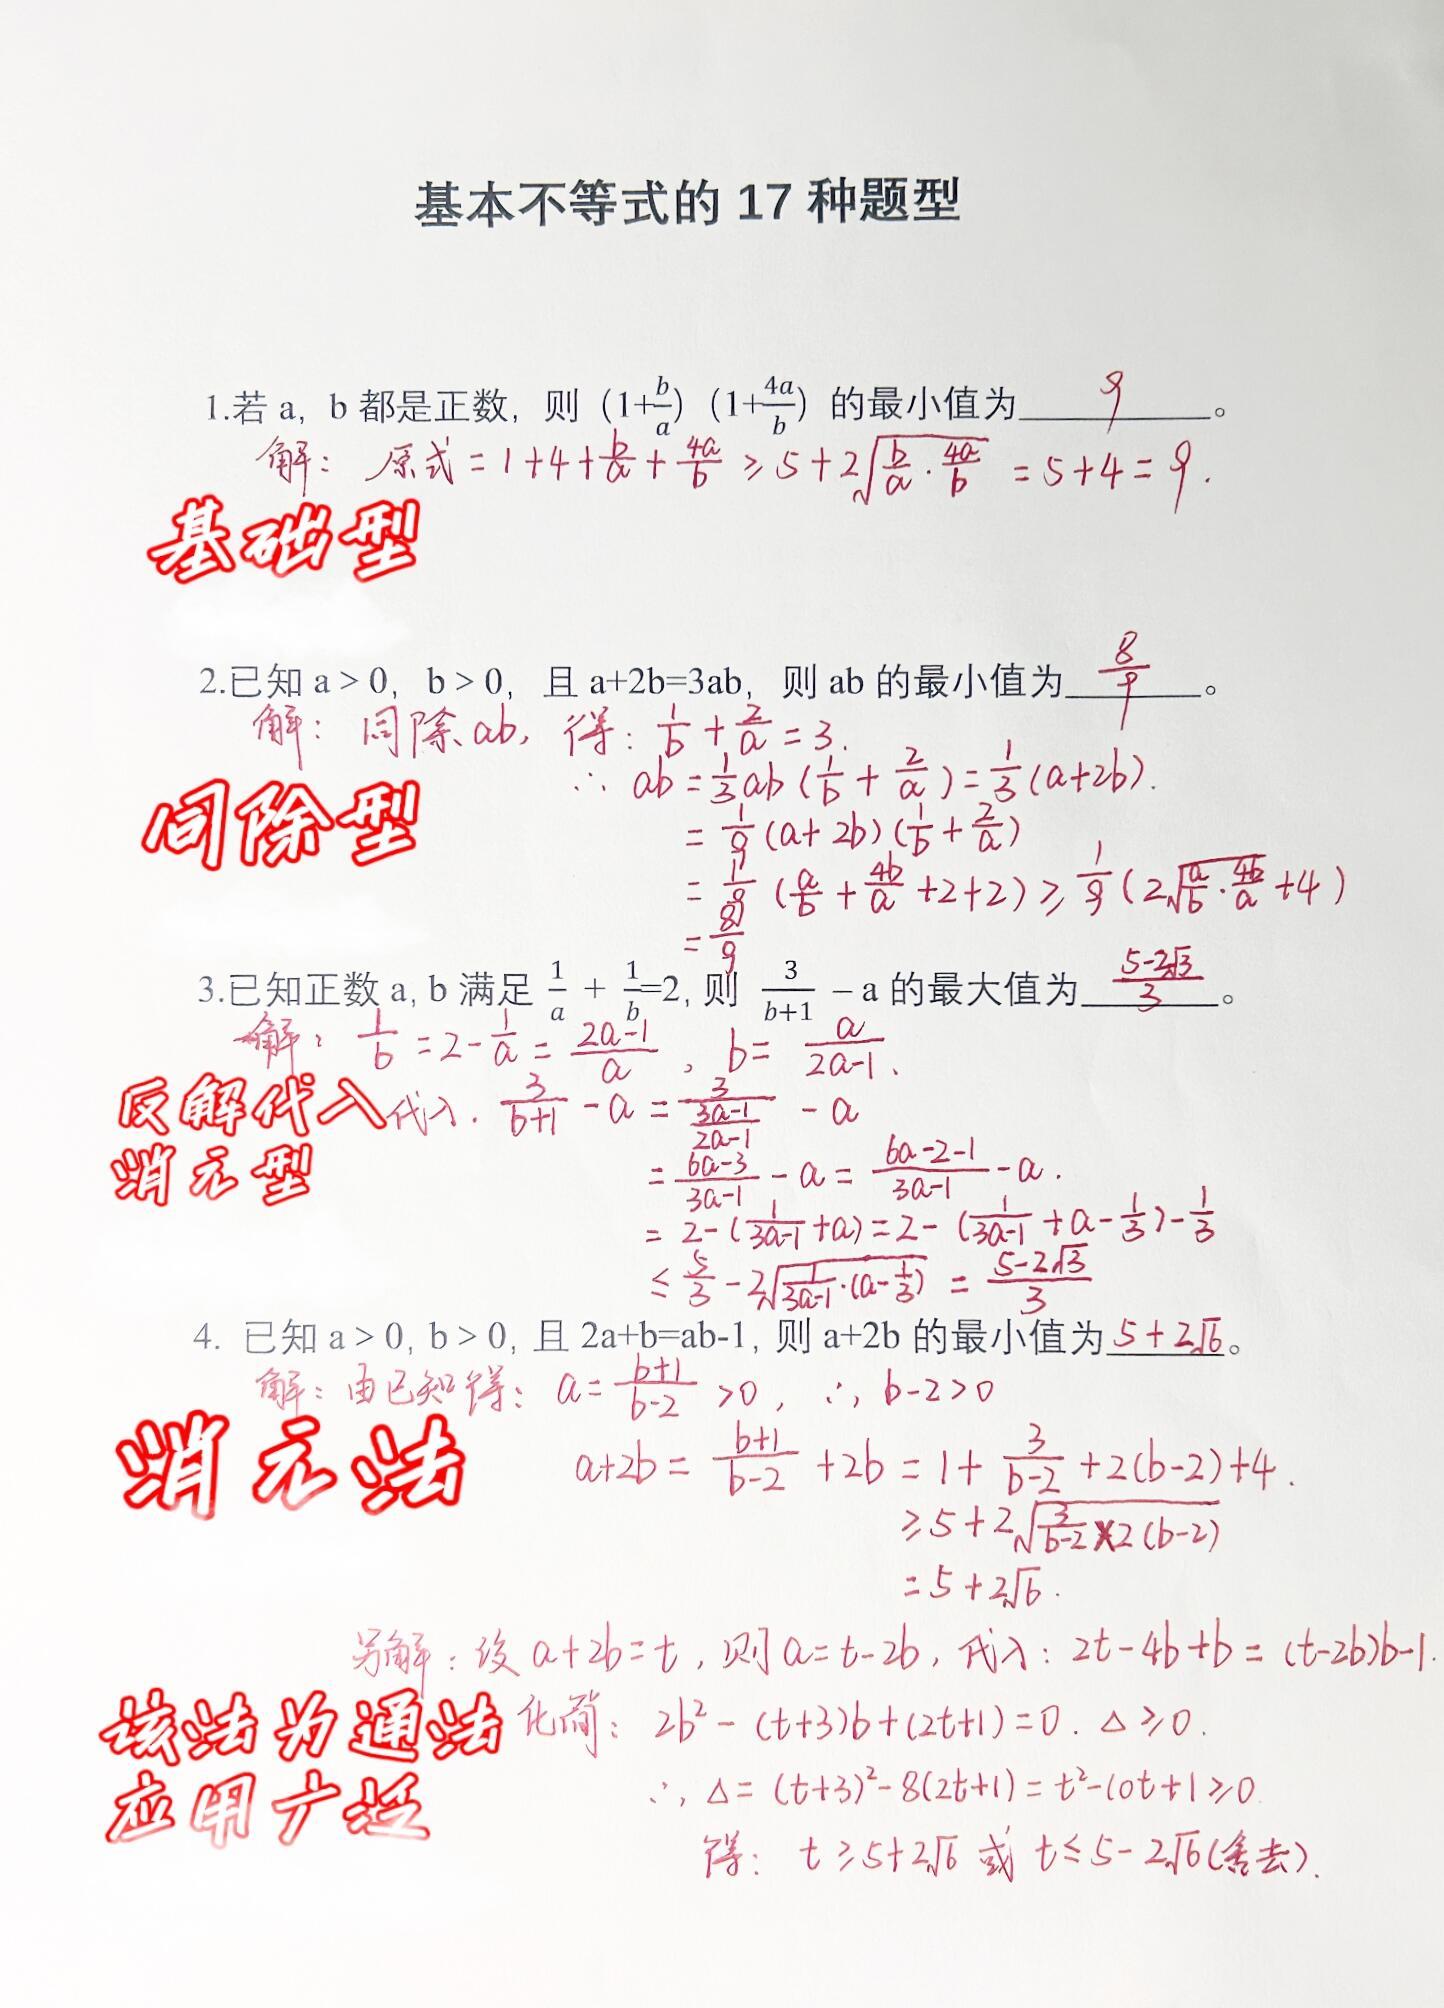 基本不等式的 17 种题型
1.若 a, b 都是正数, 则 (1+b/a) (1+4a/b) 的最小值为 9 。
解: 原式 = 1+4+b/a+4a/b ≥ 5+2√(b/a·4a/b) = 5+4 = 9.
基础型
2.已知 a > 0, b > 0, 且 a+2b=3ab, 则 ab 的最小值为 8/9 。
解: 同除 ab, 得: 1/b + 2/a = 3.
∴ ab = 1/3 ab (1/b + 2/a) = 1/3 (a+2b).
同除型
= 1/9 (a+2b) (1/b + 2/a)
= 1/9 (a/b + 4b/a +2+2) ≥ 1/9 (2√(a/b·4b/a) +4)
= 8/9
3.已知正数 a, b 满足 1/a + 1/b =2, 则 3/(b+1) – a 的最大值为 (5-2√3)/3 。
解: 1/b = 2 - 1/a = (2a-1)/a , b = a/(2a-1).
反解代入
代入. 3/(b+1) - a = 3/((3a-1)/(2a-1)) - a
消元型
= (6a-3)/(3a-1) - a = (6a-2-1)/(3a-1) - a.
= 2-(1/(3a-1)+a) = 2-(1/(3a-1)+a-1/3)-1/3
≤ 5/3 - 2√(1/(3a-1)·(a-1/3)) = (5-2√3)/3
4. 已知 a > 0, b > 0, 且 2a+b=ab-1, 则 a+2b 的最小值为 5+2√6 。
解: 由已知得: a = (b+1)/(b-2) >0, ∴, b-2>0
消元法
a+2b = (b+1)/(b-2) +2b = 1+ 3/(b-2) +2(b-2)+4.
≥ 5+2√(3/(b-2)×2(b-2))
= 5+2√6.
另解: 设 a+2b=t, 则 a=t-2b, 代入: 2t-4b+b = (t-2b)b-1.
该法为通法
化简: 2b²-(t+3)b+(2t+1)=0. △≥0.
应用广泛
∴, △= (t+3)²-8(2t+1) = t²-10t+1≥0
得: t≥5+2√6 或 t≤5-2√6(舍去).